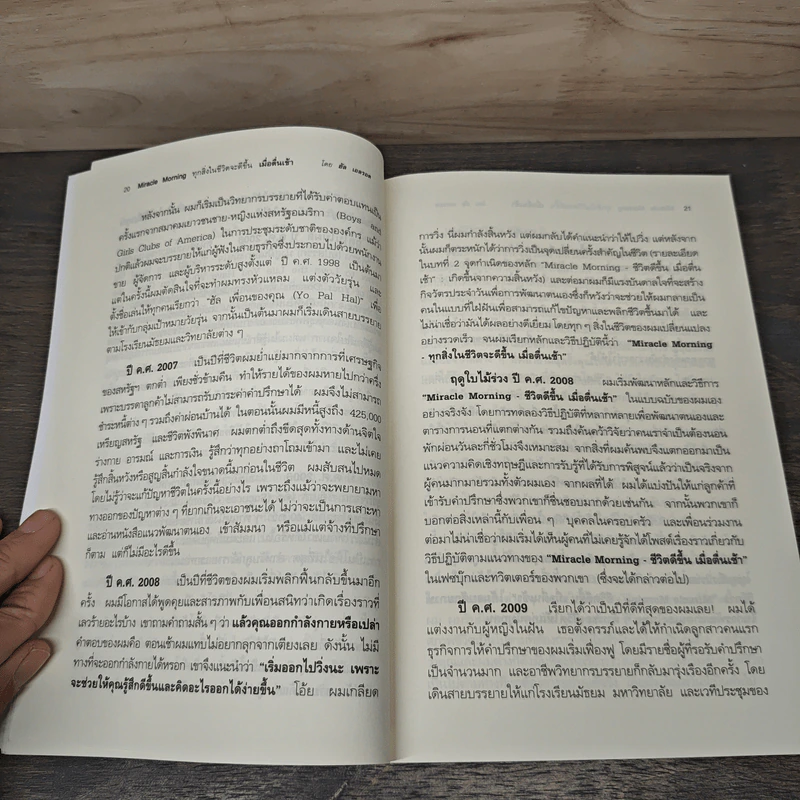 20 Miracle Morning ทุกสิ่งในชีวิตจะดีขึ้น เมื่อตื่นเช้า โดย ฮัล เอลรอด
หลังจากนั้น ผมก็เริ่มเป็นวิทยากรบรรยายที่ได้รับค่าตอบแทนเป็น
ครั้งแรกจากสมาคมเยาวชนชาย-หญิงแห่งสหรัฐอเมริกา (Boys and
Girls Clubs of America) ในการประชุมระดับชาติขององค์กร แม้ว่า
ปกติแล้วผมจะบรรยายให้แก่ผู้ฟังในสายธุรกิจซึ่งประกอบไปด้วยพนักงาน
ขาย ผู้จัดการ และผู้บริหารระดับสูงตั้งแต่ ปี ค.ศ. 1998 เป็นต้นมา
แต่ในครั้งนี้ผมตัดสินใจที่จะทำผมทรงหัวแหลม แต่งตัววัยรุ่น และ
ตั้งชื่อเล่นให้ทุกคนเรียกว่า "ฮัล เพื่อนของคุณ (Yo Pal Hal)" เพื่อ
ให้เข้ากับกลุ่มเป้าหมายวัยรุ่น จากนั้นเป็นต้นมาผมก็เริ่มเดินสายบรรยาย
ตามโรงเรียนมัธยมและวิทยาลัยต่าง ๆ
ปี ค.ศ. 2007 เป็นปีที่ชีวิตผมย่ำแย่มากจากการที่เศรษฐกิจ
ของสหรัฐฯ ตกต่ำ เพียงชั่วข้ามคืน ทำให้รายได้ของผมหายไปกว่าครึ่ง
เพราะบรรดาลูกค้าไม่สามารถรับภาระค่าคำปรึกษาได้ ผมจึงไม่สามารถ
ชำระหนี้ต่าง ๆ รวมถึงค่าผ่อนบ้านได้ ในตอนนั้นผมมีหนี้สูงถึง 425,000
เหรียญสหรัฐ และชีวิตพังพินาศ ผมตกต่ำถึงขีดสุดทั้งทางด้านจิตใจ
ร่างกาย อารมณ์ และการเงิน รู้สึกว่าทุกอย่างถาโถมเข้ามา และไม่เคย
รู้สึกสิ้นหวังหรือสูญสิ้นกำลังใจขนาดนี้มาก่อนในชีวิต ผมสับสนไปหมด
โดยไม่รู้ว่าจะแก้ปัญหาชีวิตในครั้งนี้อย่างไร เพราะถึงแม้ว่าจะพยายามหา
ทางออกของปัญหาต่าง ๆ ที่ยากเกินจะเอาชนะได้ ไม่ว่าจะเป็นการเสาะหา
และอ่านหนังสือแนวพัฒนาตนเอง เข้าสัมมนา หรือแม้แต่จ้างที่ปรึกษา
ก็ตาม แต่ก็ไม่มีอะไรดีขึ้น
ปี ค.ศ. 2008 เป็นปีที่ชีวิตของผมเริ่มพลิกฟื้นกลับขึ้นมาอีก
ครั้ง ผมมีโอกาสได้พูดคุยและสารภาพกับเพื่อนสนิทว่าเกิดเรื่องราวที่
เลวร้ายอะไรบ้าง เขาถามคำถามสั้น ๆ ว่า แล้วคุณออกกำลังกายหรือเปล่า
คำตอบของผมคือ ตอนเช้าผมแทบไม่อยากลุกจากเตียงเลย ดังนั้น ไม่มี
ทางที่จะออกกำลังกายได้หรอก เขาจึงแนะนำว่า "เริ่มออกไปวิ่งนะ เพราะ
จะช่วยให้คุณรู้สึกดีขึ้นและคิดอะไรออกได้ง่ายขึ้น" โอ้ย ผมเกลียด
21
การวิ่ง นี่ผมกำลังสิ้นหวัง แต่ผมกลับได้คำแนะนำว่าให้ไปวิ่ง แต่หลังจาก
นั้นผมก็ตระหนักได้ว่าการวิ่งเป็นจุดเปลี่ยนครั้งสำคัญในชีวิต (รายละเอียด
ในบทที่ 2 จุดกำเนิดของหลัก "Miracle Morning - ชีวิตดีขึ้น เมื่อตื่น
เช้า" : เกิดขึ้นจากความสิ้นหวัง) และต่อมาผมก็มีแรงบันดาลใจที่จะสร้าง
กิจวัตรประจำวันเพื่อการพัฒนาตนเองซึ่งก็หวังว่าจะช่วยให้ผมกลายเป็น
คนในแบบที่ใฝ่ฝันเพื่อสามารถแก้ไขปัญหาและพลิกชีวิตขึ้นมาได้ และ
ไม่น่าเชื่อว่ามันได้ผลอย่างดีเยี่ยม โดยทุก ๆ สิ่งในชีวิตของผมเปลี่ยนแปลง
อย่างรวดเร็ว จนผมเรียกหลักและวิธีปฏิบัตินี้ว่า "Miracle Morning
- ทุกสิ่งในชีวิตจะดีขึ้น เมื่อตื่นเช้า"
ฤดูใบไม้ร่วง ปี ค.ศ. 2008 ผมเริ่มพัฒนาหลักและวิธีการ
"Miracle Morning - ชีวิตดีขึ้น เมื่อตื่นเช้า" ในแบบฉบับของผมเอง
อย่างจริงจัง โดยการทดลองวิธีปฏิบัติที่หลากหลายเพื่อพัฒนาตนเองและ
ตารางการนอนที่แตกต่างกัน รวมถึงค้นคว้าวิจัยว่าคนเราจำเป็นต้องนอน
พักผ่อนวันละกี่ชั่วโมงจึงเหมาะสม จากสิ่งที่ผมค้นพบจึงแตกออกมาเป็น
แนวความคิดเชิงทฤษฎีและการรับรู้ที่ได้รับการพิสูจน์แล้วว่าเป็นจริงจาก
ผู้คนมากมายรวมทั้งตัวผมเอง จากผลที่ได้ ผมได้แบ่งปันให้แก่ลูกค้าที่
เข้ารับคำปรึกษาซึ่งพวกเขาก็ชื่นชอบมากด้วยเช่นกัน จากนั้นพวกเขาก็
บอกต่อสิ่งเหล่านี้กับเพื่อน ๆ บุคคลในครอบครัว และเพื่อนร่วมงาน
ต่อมาไม่น่าเชื่อว่าผมเริ่มได้เห็นผู้คนที่ไม่เคยรู้จักได้โพสต์เรื่องราวเกี่ยวกับ
วิธีปฏิบัติตามแนวทางของ "Miracle Morning - ชีวิตดีขึ้น เมื่อตื่นเช้า"
ในเฟซบุ๊กและทวิตเตอร์ของพวกเขา (ซึ่งจะได้กล่าวต่อไป)
ปี ค.ศ. 2009 เรียกได้ว่าเป็นปีที่ดีที่สุดของผมเลย! ผมได้
แต่งงานกับผู้หญิงในฝัน เธอตั้งครรภ์และได้ให้กำเนิดลูกสาวคนแรก
ธุรกิจการให้คำปรึกษาของผมเริ่มเฟื่องฟู โดยมีรายชื่อผู้ที่รอรับคำปรึกษา
เป็นจำนวนมาก และอาชีพวิทยากรบรรยายก็กลับมารุ่งเรืองอีกครั้ง โดย
เดินสายบรรยายให้แก่โรงเรียนมัธยม มหาวิทยาลัย และเวทีประชุมของ